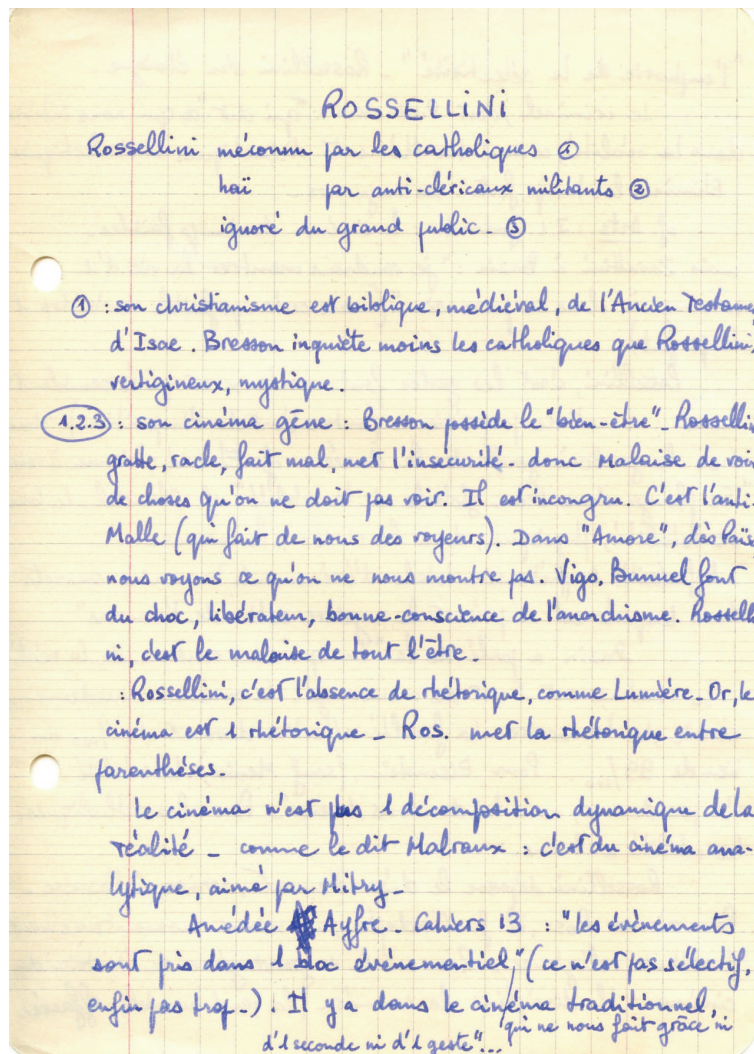 ROSSELLINI
Rossellini méconnu par les catholiques ①
haï par anti-cléricaux militants ②
ignoré du grand public. ③
① : son christianisme est biblique, médiéval, de l'Ancien Testame
d'Isae. Bresson inquiète moins les catholiques que Rossellini,
vertigineux, mystique.
1.2.3 : son cinéma gêne : Bresson possède le "bien-être" _ Rossellin
gratte, racle, fait mal, met l'insécurité. donc Malaise de voir
de choses qu'on ne doit pas voir. Il est incongru. C'est l'anti-
Malle (qui fait de nous des voyeurs). Dans "Amore", dès Païsa
nous voyons ce qu'on ne nous montre pas. Vigo, Bunuel font
du choc, libérateur, bonne-conscience de l'anarchisme. Rosselli
ni, c'est le malaise de tout l'être.
: Rossellini, c'est l'absence de rhétorique, comme Lumière _ Or, le
cinéma est 1 rhétorique _ Ros. met la rhétorique entre
parenthèses.
Le cinéma n'est pas 1 décomposition dynamique de la
réalité _ comme le dit Malraux : c'est du cinéma ana-
lytique, aimé par Mitry _
Amédée Ayfre _ Cahiers 13 : "les évènements
sont pris dans 1 bloc évènementiel," (ce n'est pas sélectif,
enfin pas trop _). Il y a dans le cinéma traditionnel,
qui ne nous fait grâce ni
d'1 seconde ni d'1 geste"...